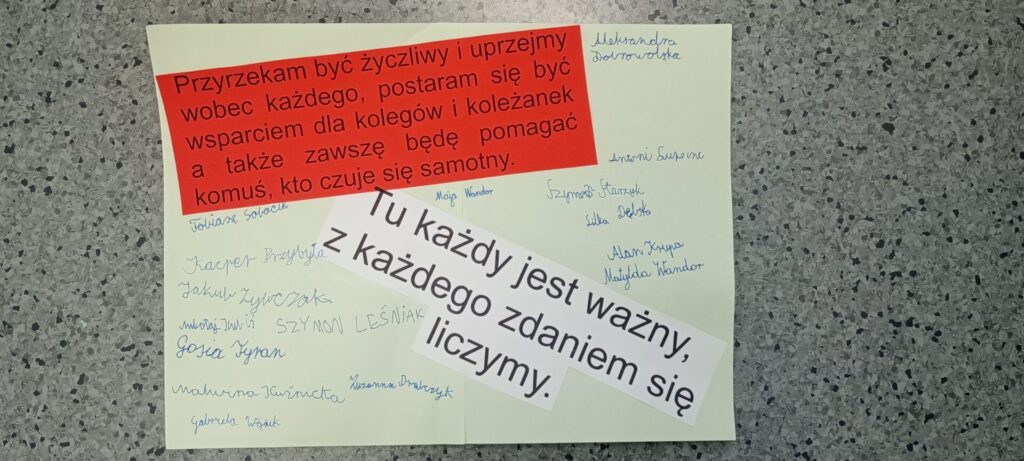 Przyrzekam być życzliwy i uprzejmy
wobec każdego, postaram się być
wsparciem dla kolegów i koleżanek
a także zawszę będę pomagać
komuś, kto czuje się samotny.
Tu każdy jest ważny,
z każdego zdaniem się
liczymy.
Aleksandra
Dobrowolska
Antoni
Maja Wandor
Szymon Starzyk
Lilka Dębska
Tobiasz Sobocik
Alan Krupa
Matylda Wandor
Kacper Przybyła
Jakub Żywczak
Mikołaj
SZYMON LEŚNIAK
Gosia Tyran
Malwina Kuśnicka
Zuzanna Drabczyk
Gabriela Wąsik